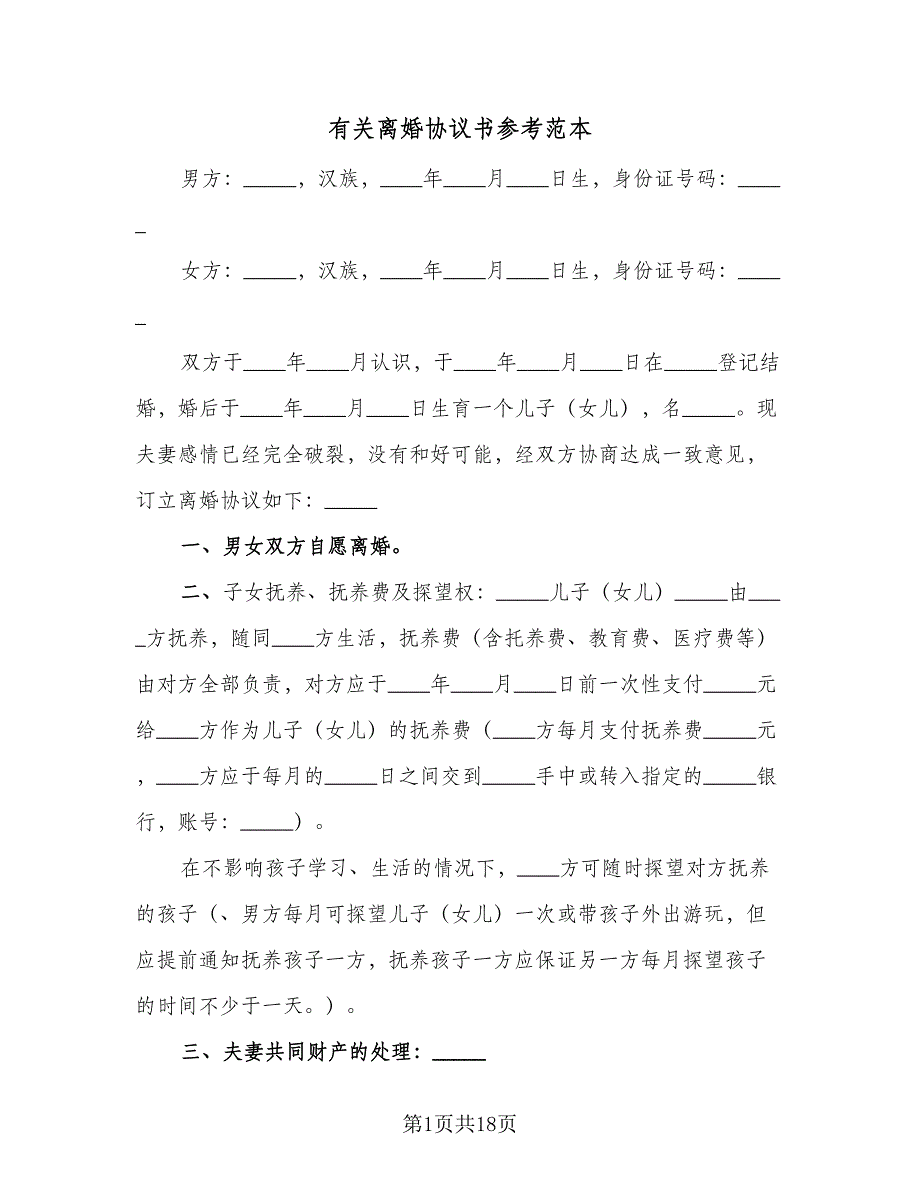 有关离婚协议书参考范本
男方：_____，汉族，____年____月____日生，身份证号码：____
_
女方：_____，汉族，____年____月____日生，身份证号码：____
_
双方于____年____月认识，于____年____月____日在_____登记结
婚，婚后于____年____月____日生育一个儿子（女儿），名_____。现
夫妻感情已经完全破裂，没有和好可能，经双方协商达成一致意见，
订立离婚协议如下：_____
一、男女双方自愿离婚。
二、子女抚养、抚养费及探望权：_____儿子（女儿）_____由___
_方抚养，随同____方生活，抚养费（含托养费、教育费、医疗费等）
由对方全部负责，对方应于____年____月____日前一次性支付_____元
给____方作为儿子（女儿）的抚养费（____方每月支付抚养费_____元
，____方应于每月的_____日之间交到_____手中或转入指定的_____银
行，账号：_____）。
在不影响孩子学习、生活的情况下，____方可随时探望对方抚养
的孩子（、男方每月可探望儿子（女儿）一次或带孩子外出游玩，但
应提前通知抚养孩子一方，抚养孩子一方应保证另一方每月探望孩子
的时间不少于一天。）。
三、夫妻共同财产的处理：_____
第1页共18页